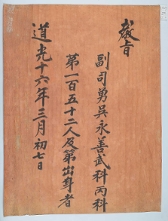 教旨
副司勇吳永善武科丙科
第一百五十二人及第出身者
道光十六年三月初七日